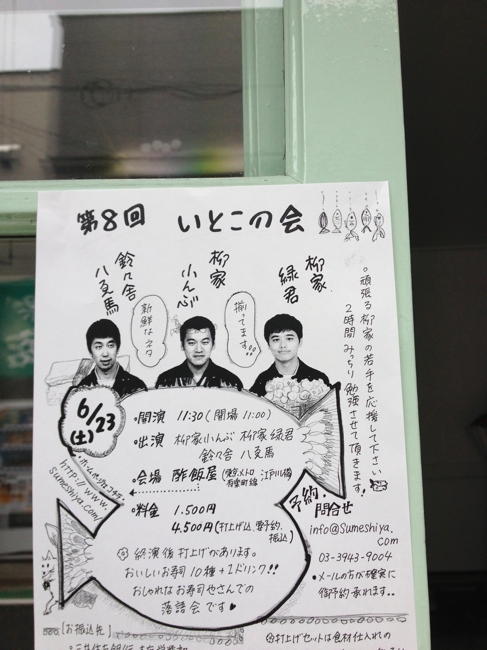 第8回 いとこの会
鈴々舎
八ゑ馬
柳家
小んぶ
柳家
緑君
新鮮なネタ
揃ってます!!
◦頑張る柳家の若手を応援して下さい
2時間みっちり勉強させて頂きます!
6/23
(土)
・開演 11:30(開場 11:00)
・出演 柳家小んぶ 柳家緑君
鈴々舎 八ゑ馬
・会場 酢飯屋 (東京メトロ
有楽町線 江戸川橋)
・料金 1.500円
4.500円(打上げ込、要予約、
振込)
終演後打上げがあります。
おいしいお寿司10種+1ドリンク!!
おしゃれなお寿司やさんでの
落語会です♥
http://www.
sumeshiya.com/
予約・
問合せ
info@Sumeshiya.
com
03-3943-9004
・メールの方が確実に
御予約承れます..
【お振込先】
打上げセットは食材仕入れの